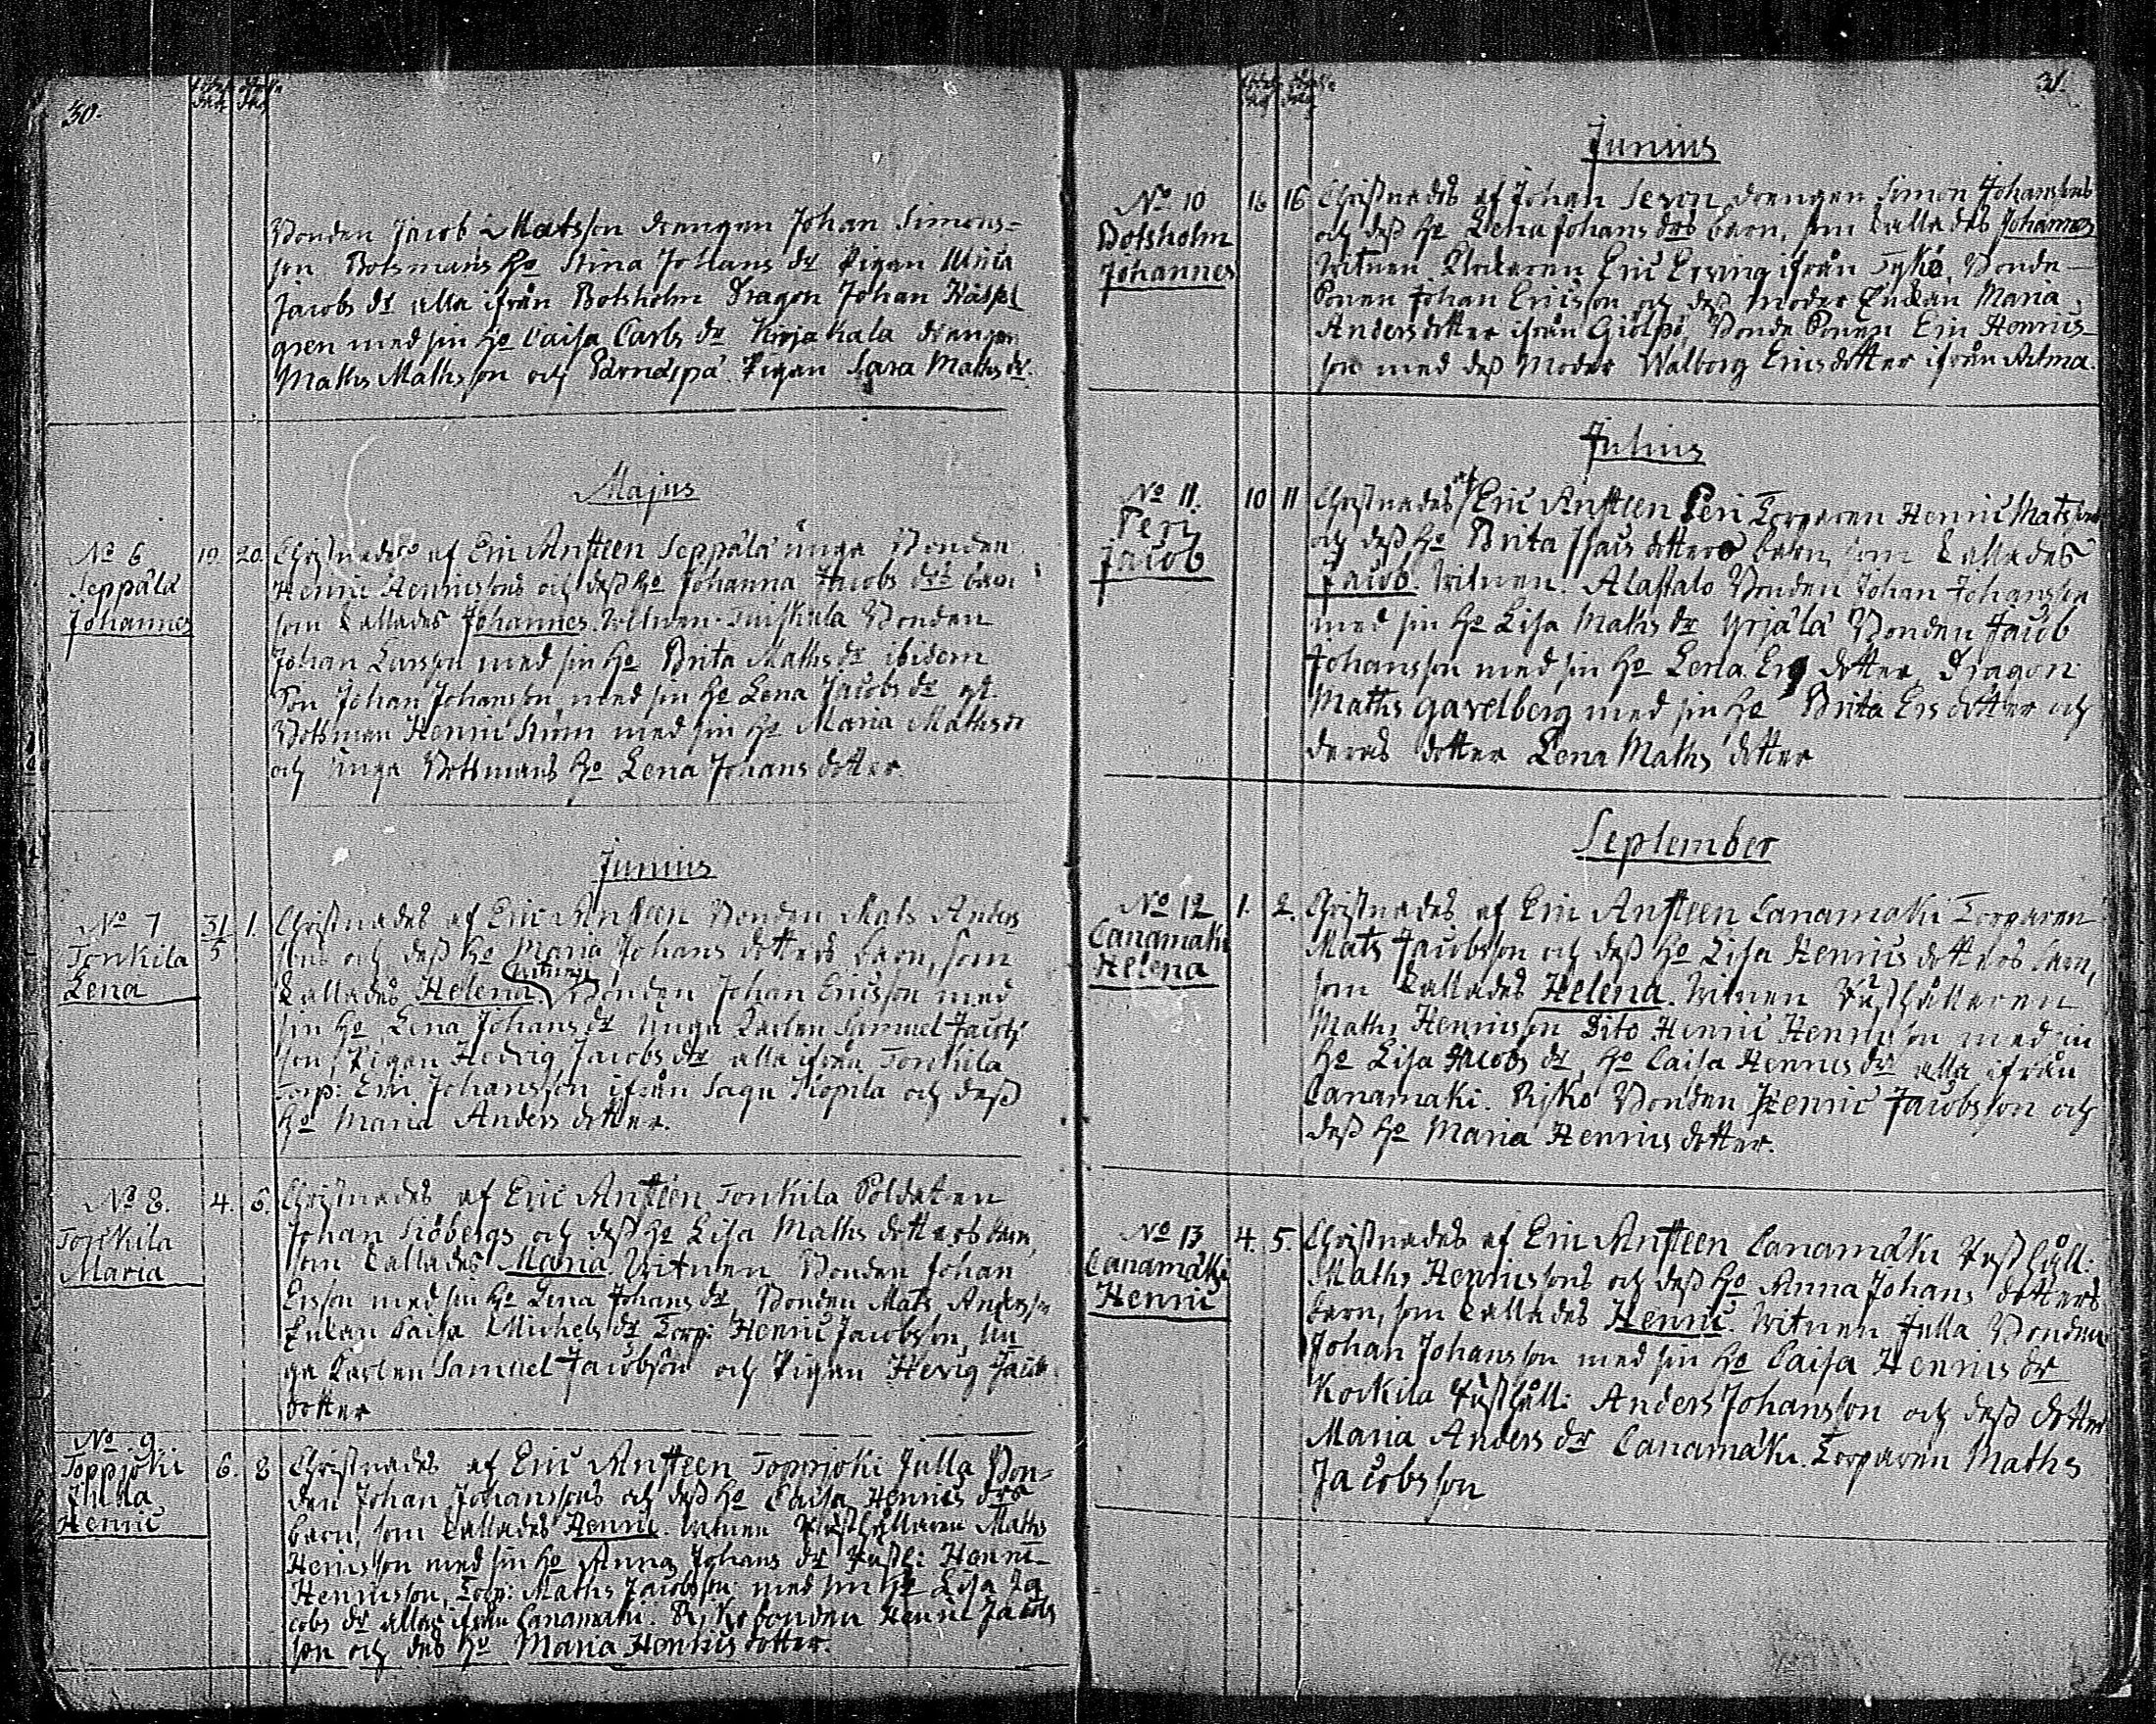 30.
Bonden Jacob Matsson drengen Johan Simons-
son Botsmans Ho Stina Johans dr Pigan
Jacobs dr alla ifrån Botsholm Dragon Johan
gren med sin Ho Caisa Carls dr Kirjakala drengen
Maths Mathsson och Pigan Sara Maths dr.
Majus
No 6
Seppälä
Johannes
19. 20.
Christnades af Eric Ansteen Seppälä unga Bonden
Henric Henricssons och dess Ho Johanna Jacobs drs barn
som kallades Johannes. Witnen. Tuiskula Bonden
Johan Larsson med sin Ho Brita Maths dr ibidem
Son Johan Johansson med sin Ho Lena Jacobs dr
Botsman Henric med sin Ho Maria Maths dr
och unga Botsmans Ho Lena Johans dotter.
Junius
No 7
Torkila
Lena
31/5 1.
Christnades af Eric Ansteen Bonden Mats Anders
sons och dess Ho Maria Johans dotters barn, som
kallades Helena. Witnen Bonden Johan Ericsson med
sin Ho Lena Johans dr Unga Karlen Samuel Jacobs
son, Pigan Hedvig Jacobs dr alla ifrån Torkila
Torp: Eric Johansson ifrån Sagu och dess
Ho Maria Anders dotter.
No 8.
Torkila
Maria
4. 6.
Christnades af Eric Ansteen Torkila Soldaten
Johan Siöbergs och dess Ho Lisa Maths dotters barn,
som kallades Maria. Witnen Bonden Johan
Ersson med sin Ho Lena Johans dr, Bonden Mats Andersson
Enkan Caisa Michels dr Torp: Henric Jacobsson, un
ga Karlen Samuel Jacobson och Pigan Hevig Jacobs
dotter
No. 9.
Toppjoki
Julla
Henric
6. 8
Christnades af Eric Ansteen Toppjoki Julla Bon-
den Johan Johanssons och dess Ho Caisa Henrics drs
barn, som kallades Henric. Witnen Rusthållaren Maths
Henrisson med sin Ho Anna Johans dr Rusth: Henric
Henricsson, Torp: Maths Jacobsson med sin Ho Lisa Ja
cobs dr alla ifrån Canamäki. Rijko bonden Henric Jacobs
son och des Ho Maria Henrics dotter.
31.
Junius
No 10
Botsholm
Johannes
16 16
Christnades af Johan drengen Simon Johanssons
och dess Ho Lena Johans drs barn, som kallades Johannes
Witnen. Eric ifrån Tykö, Bonde-
Sonen Johan Ericsson och dess moder Enkan Maria
Andersdotter ifrån Bonde Sonen Eric Henrics-
son med dess Moder Walborg Ericsdotter ifrån
Julius
No 11.
Peri
Jacob
10 11
Christnades af Eric Ansteen Peri Torparen Henric Matssons
och dess Ho Brita Isacs dotters barn som kallades
Jacob. Witnen. Alastalo Bonden Johan Johansson
med sin Ho Lisa Maths dr Yrjälä Bonden Jacob
Johansson med sin Ho Lena Ers dotter, Dragon
Maths Gavelberg med sin Ho Brita Ers dotter och
deras dotter Lena Maths dotter
September
No 12
Canamäki
Helena
1. 2.
Christnades af Eric Ansteen Canamäki Torparen
Mats Jacobsson och dess Ho Lisa Henrics dotters barn,
som kallades Helena. Witnen Rusthållaren
Maths Henricsson Dito Henric Henricsson med sin
Ho Lisa Jacobs dr, Ho Caisa Henrics dr alla ifrån
Canamäki. Rijko Bonden Henric Jacobsson och
dess Ho Maria Henrics dotter.
No 13
Canamäki
Henric
4. 5.
Christnades af Eric Ansteen Canamäki Rusthåll:
Maths Henricssons och dess Ho Anna Johans dotters
barn, som kallades Henric. Witnen Julla Bonden
Johan Johansson med sin Ho Caisa Henrics dr
Kockila Rusthåll: Anders Johansson och dess dotter
Maria Anders dr Canamäki. Torparen Maths
Jacobsson